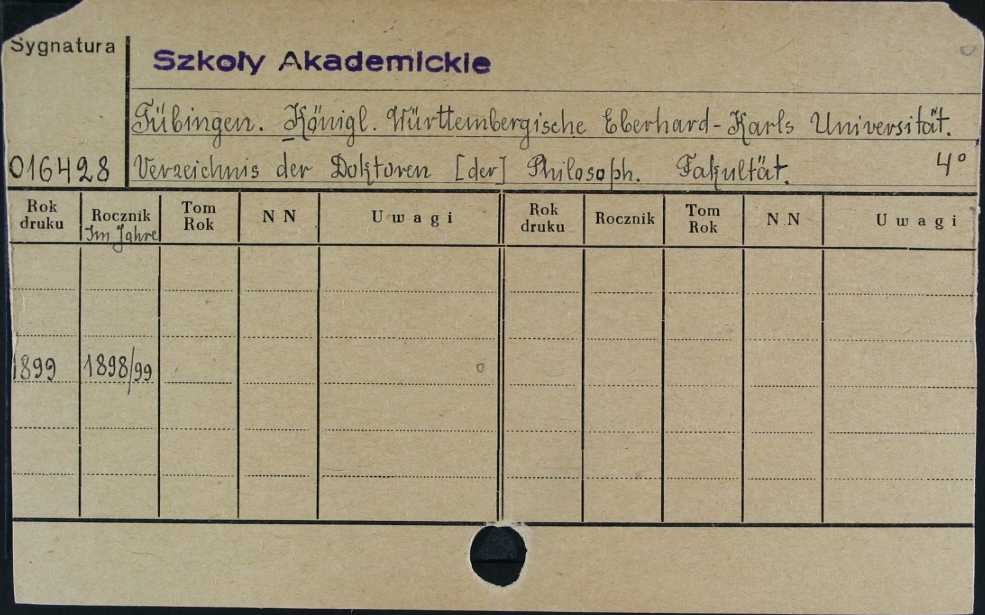 Sygnatura
Szkoły Akademickie
Tübingen. Königl. Württembergische Eberhard-Karls Universität.
016428 Verzeichnis der Doktoren [der] Philosoph. Fakultät. 4°
Rok druku Rocznik Im Jahre Tom Rok N N Uwagi Rok druku Rocznik Tom Rok N N Uwagi
1899 1898/99